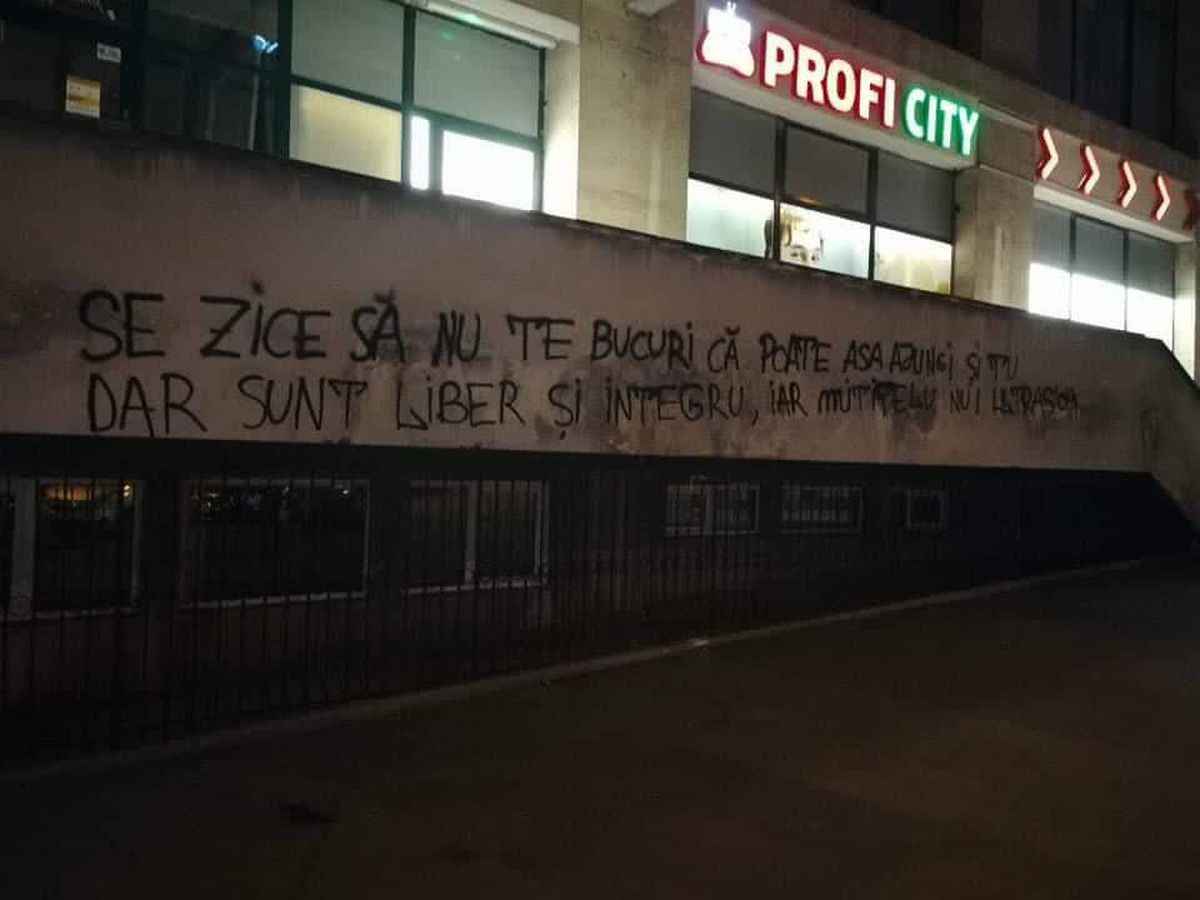 PROFI CITY
SE ZICE SĂ NU TE BUCURI CĂ POATE ASA AJUNGI ȘI TU
DAR SUNT LIBER ȘI INTEGRU, IAR MITITELU NU I ULTRAS